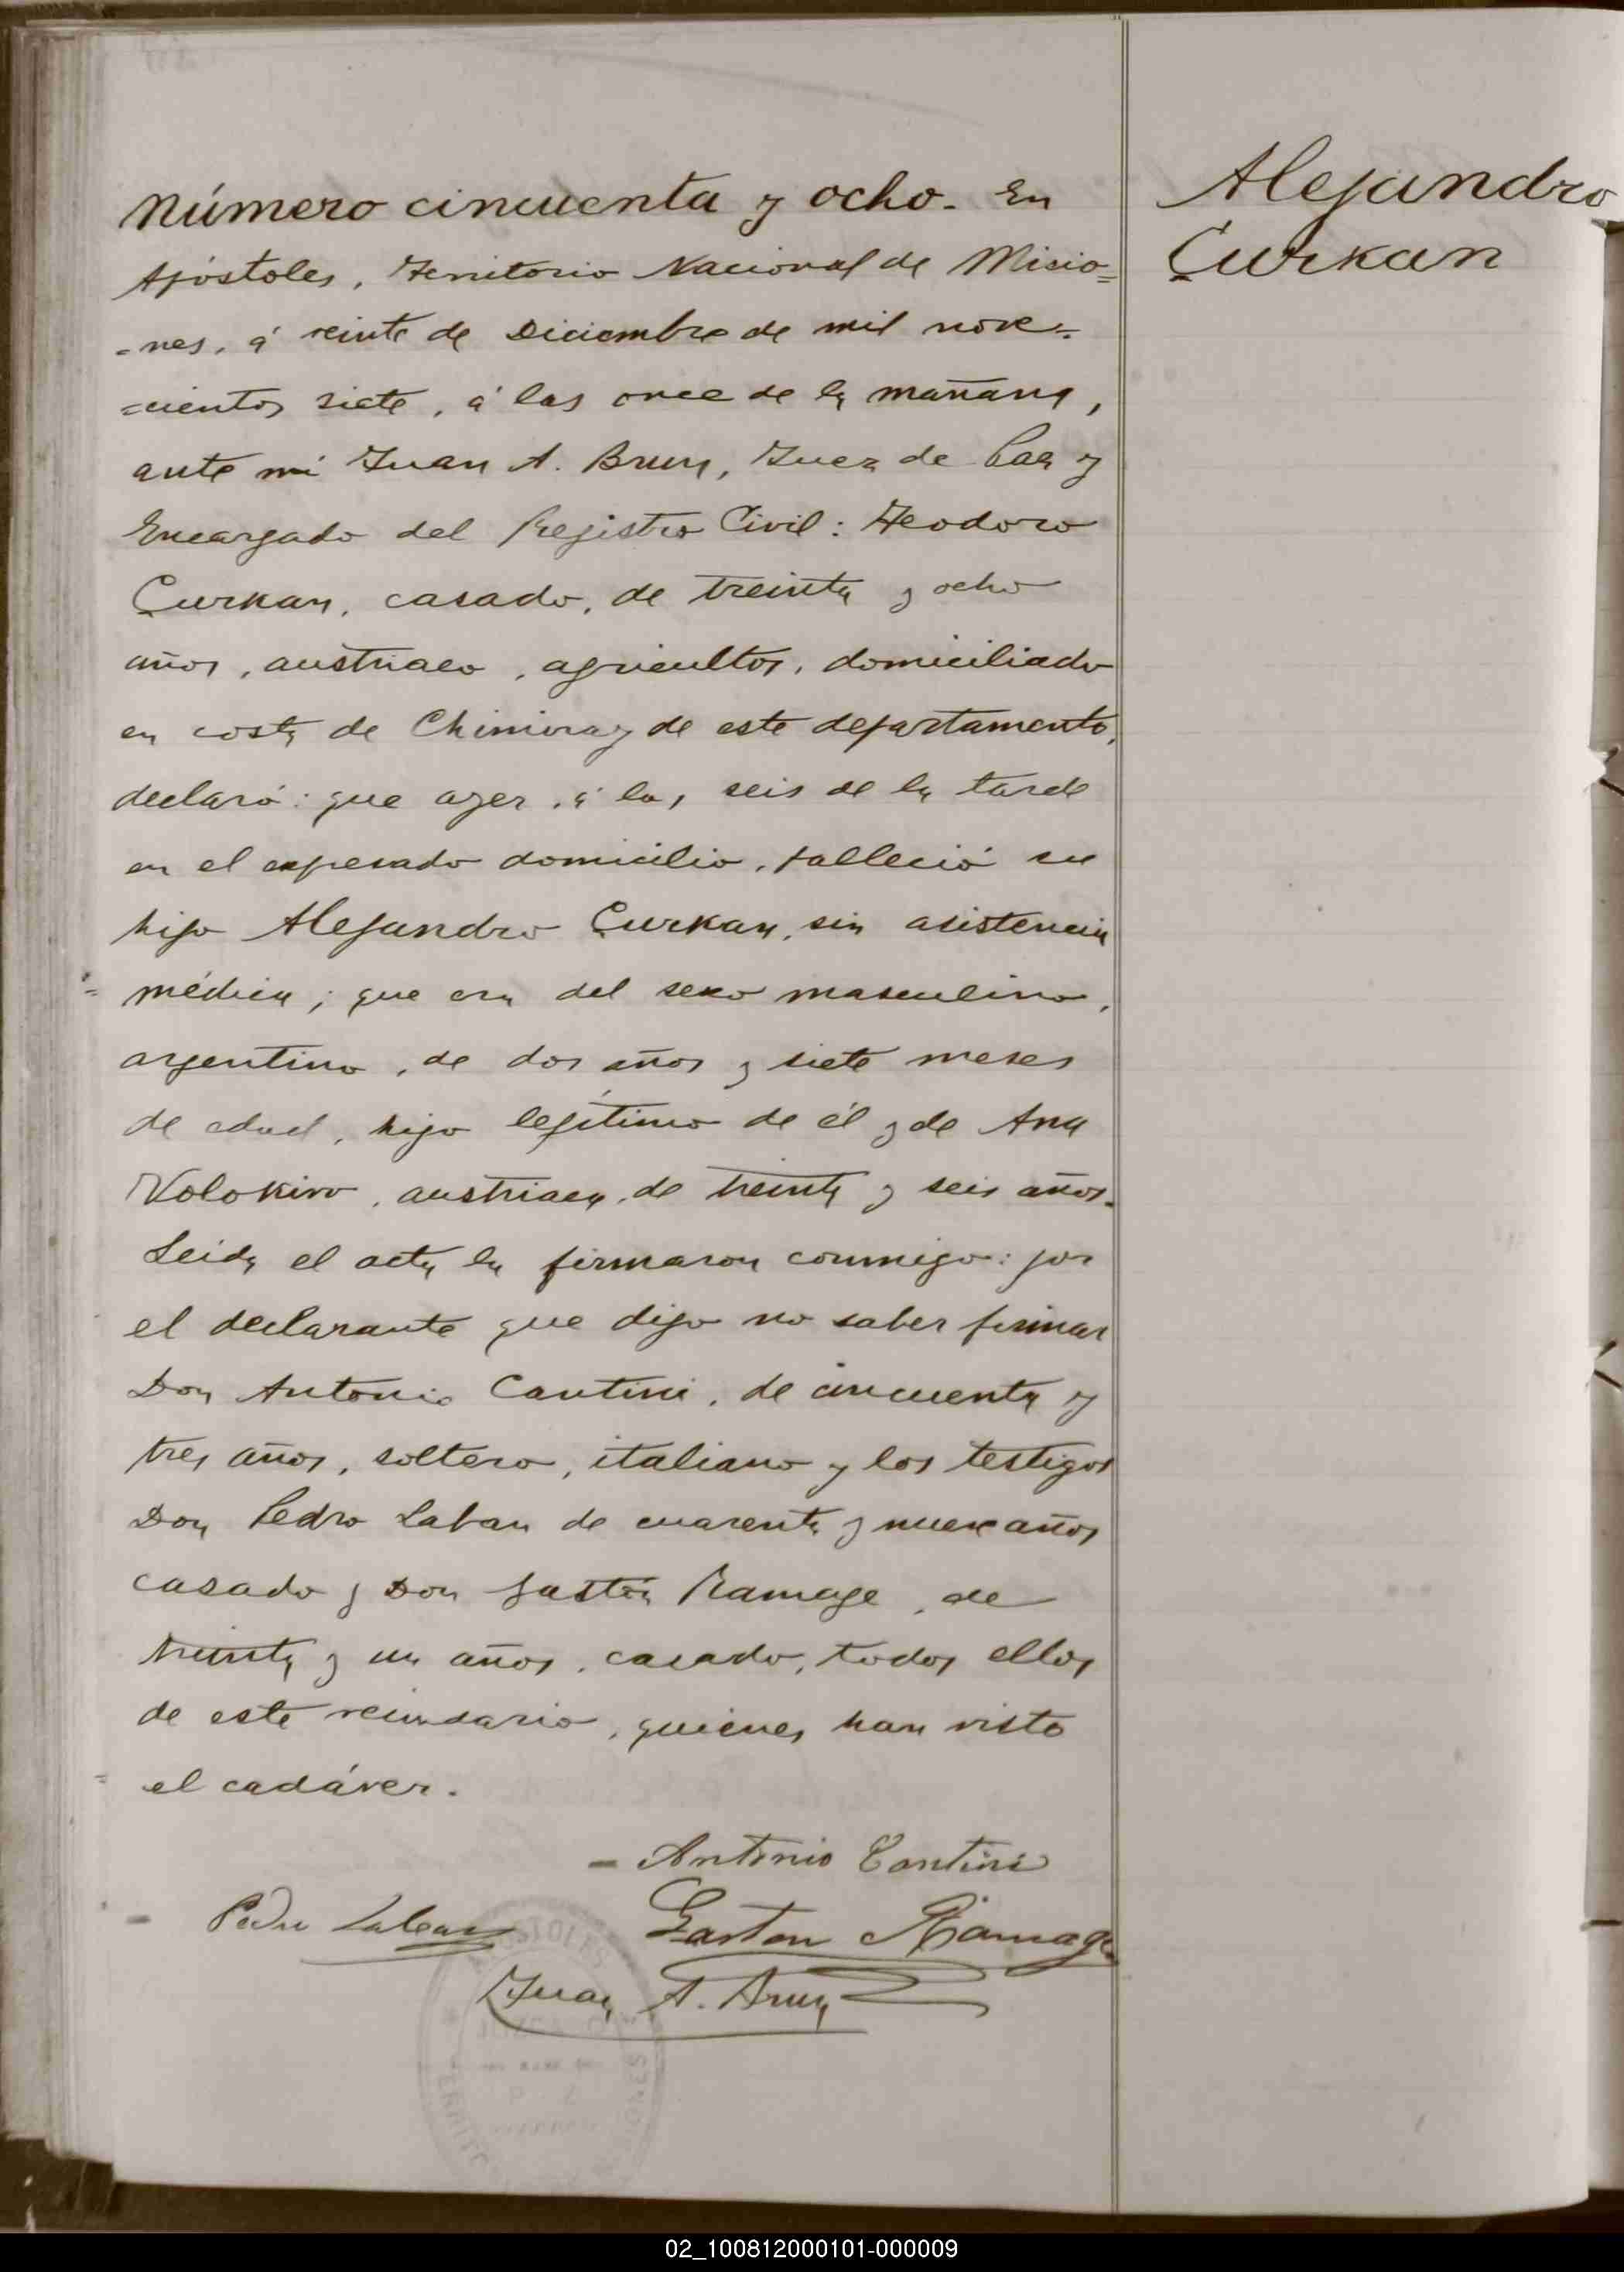 Número cincuenta y ocho. En
Apóstoles, Territorio Nacional de Misio=
=nes, á veinte de Diciembre de mil nove=
=cientos siete, á las once de la mañana,
ante mi Juan A. Brun, Juez de Paz y
Encargado del Registro Civil: Teodoro
Çurkan, casado, de treinta y ocho
años, austriaco, agricultor, domiciliado
en costa de Chimiray de este departamento,
declaró: que ayer, á las seis de la tarde
en el expresado domicilio, falleció su
hijo Alejandro Çurkan, sin asistencia
médica; que era del sexo masculino,
argentino, de dos años y siete meses
de edad, hijo legítimo de él y de Ana
Volokivo, austriaca, de treinta y seis años.
Leida el acta la firmaron conmigo: por
el declarante que dijo no saber firmar
Don Antonio Cantini, de cincuenta y
tres años, soltero, italiano y los testigos
Don Pedro Laban de cuarenta y nueve años
casado y Don Gastón Ramage, de
treinta y un años, casado, todos ellos
de este vecindario, quienes han visto
el cadáver.
Antonio Cantini
Pedro Laban Gaston Ramage
Juan A. Brun
Alejandro
Çurkan
02_100812000101-000009